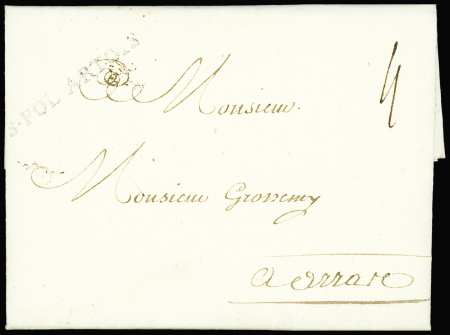 S·POL ARTOIS
4
Monsieur
Monsieur Grossemy
a arras